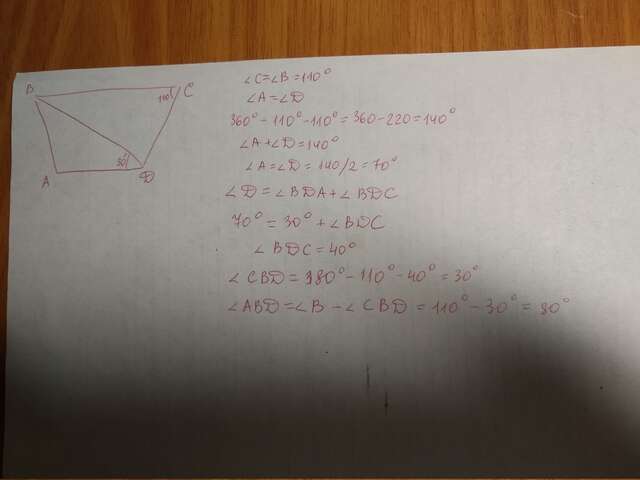 B
C
110°
30°
A
D
∠C=∠B=110°
∠A=∠D
360°-110°-110°=360-220=140°
∠A+∠D=140°
∠A=∠D=140/2=70°
∠D=∠BDA+∠BDC
70°=30°+∠BDC
∠BDC=40°
∠CBD=180°-110°-40°=30°
∠ABD=∠B-∠CBD=110°-30°=80°